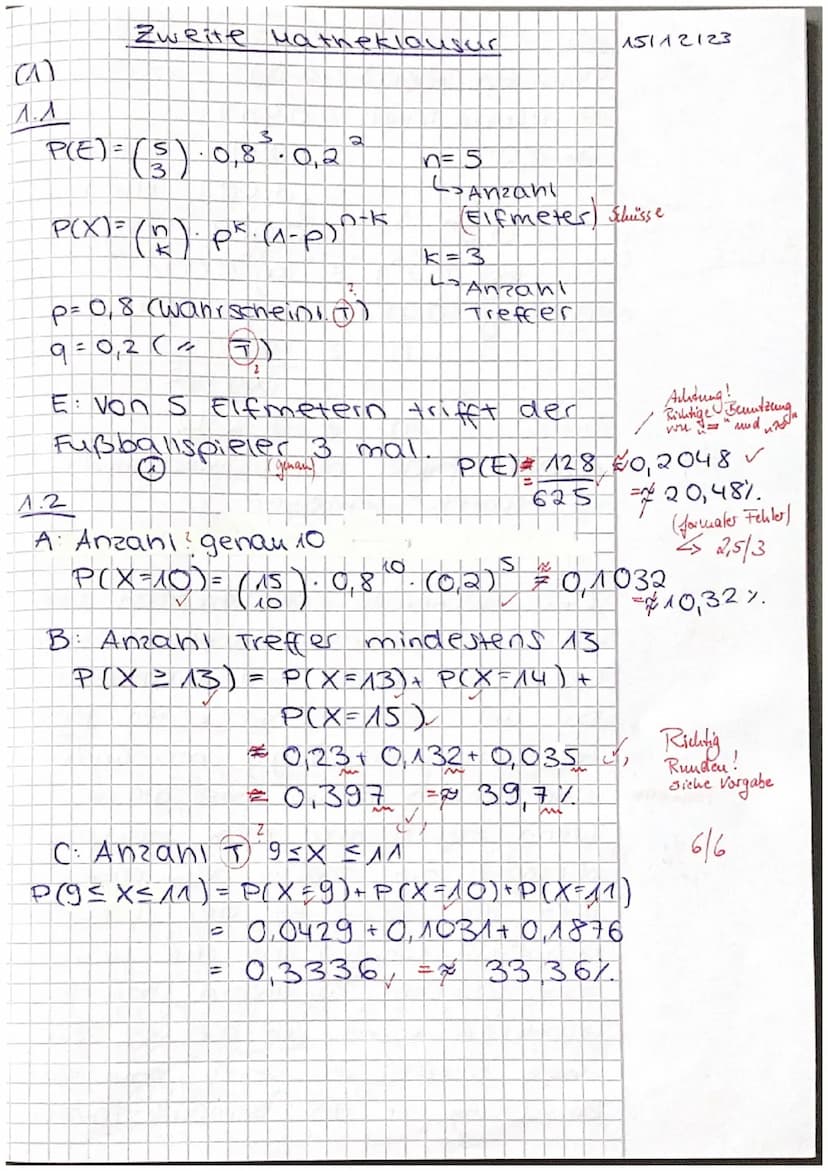 Zweite Matheklausur 15/12/23
(1)
1.1
P(E) = (5 3) · 0,8³ · 0,2² n = 5
↳ Anzahl
(Elfmeter) Schüsse
P(X) = (n k) · p^k · (1-p)^n-k
k = 3
↳ Anzahl
Treffer
p = 0,8 (Wahrscheinl. T) ?
q = 0,2 ( " T) ?
E: Von 5 Elfmetern trifft der
Fußballspieler 3 mal.
① (genau)
Achtung!
Richtige Benutzung
von "=" und "≈"
P(E) = 128/625 ≈ 0,2048 ✓
= ≈ 20,48%.
(formaler Fehler)
↳ 2,5/3
1.2
A: Anzahl ? genau 10
P(X=10) = (15 10) · 0,8^10 · (0,2)^5 ≈ 0,1032
= ≈ 10,32%.
B: Anzahl Treffer mindestens 13
P(X ≥ 13) = P(X=13) + P(X=14) +
P(X=15)
≈ 0,23 + 0,132 + 0,035 ✓
≈ 0,397 = ≈ 39,7%
Richtig
Runden!
siehe Vorgabe
6/6
C: Anzahl T ? 9≤X ≤11
P(9≤ X≤11) = P(X=9) + P(X=10) + P(X=11)
= 0,0429 + 0,1031 + 0,1876
= 0,3336, = ≈ 33,36%.